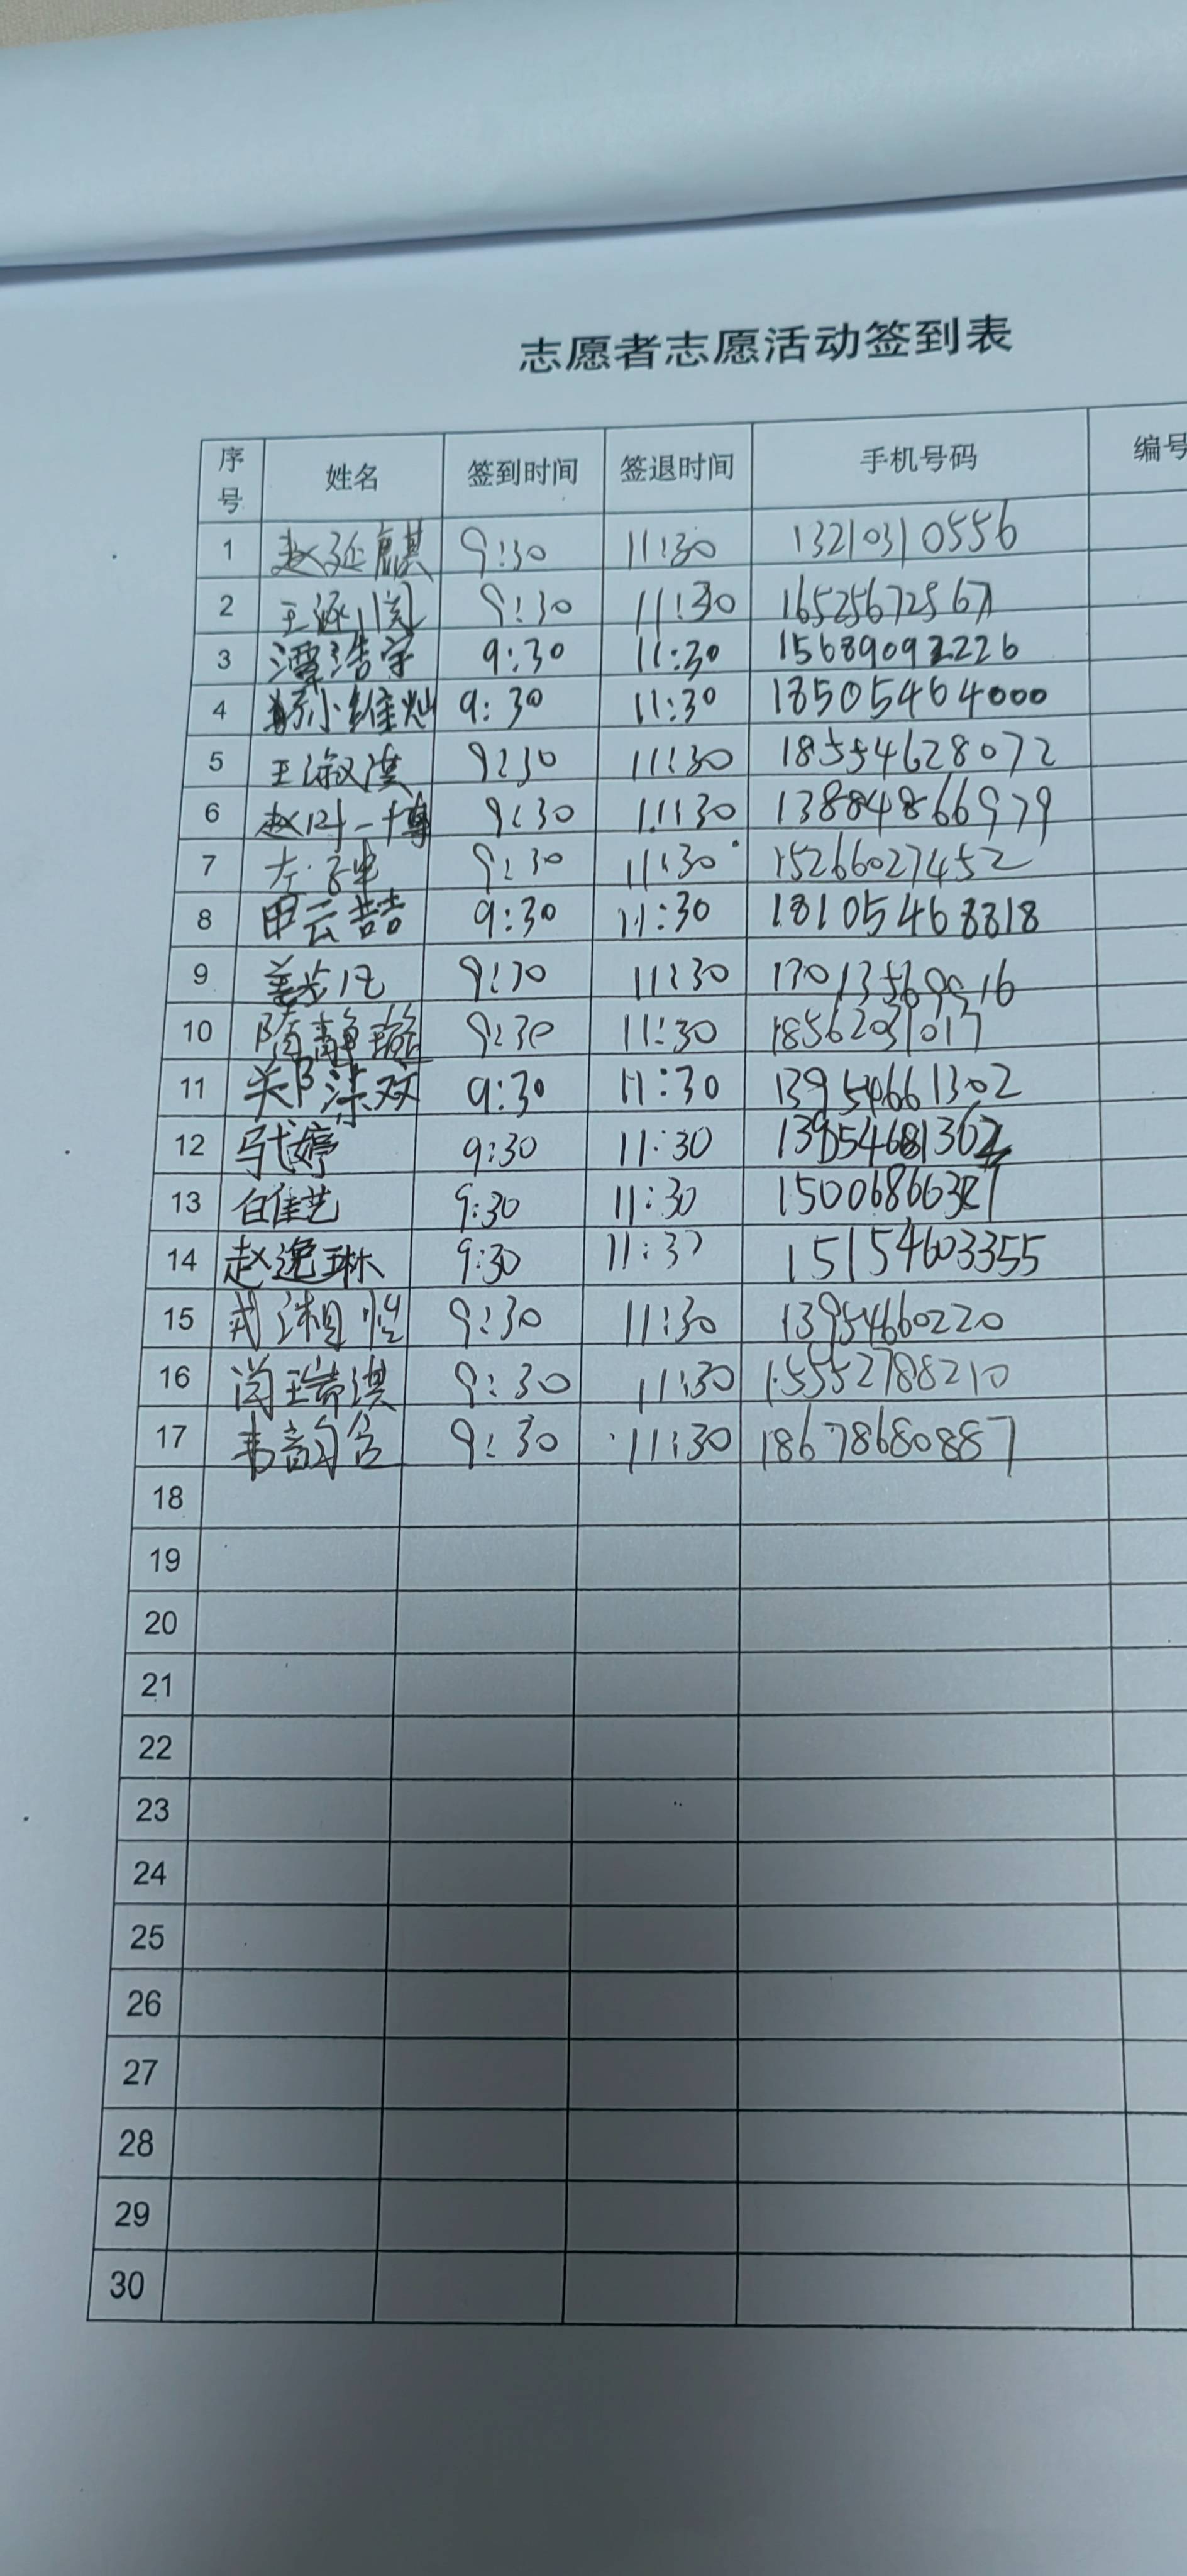 志愿者志愿活动签到表
序号 姓名 签到时间 签退时间 手机号码 编号
1 赵延麒 9:30 11:30 13210310556
2 王 9:30 11:30
3 潭浩宇 9:30 11:30 15689092226
4 9:30 11:30 18505464000
5 王淑淇 9:30 11:30 18554628072
6 赵一博 9:30 11:30 13884866979
7 左子申 9:30 11:30 15266027452
8 申云喆 9:30 11:30 18105468818
9 姜步凡 9:30 11:30
10 隋静璇 9:30 11:30 18562031017
11 9:30 11:30 13954661302
12 婷 9:30 11:30 13954681362
13 白佳艺 9:30 11:30
14 赵逸琳 9:30 11:30 15154603355
15 武湘恺 9:30 11:30 13954660220
16 瑞淇 9:30 11:30 15552788210
17 韦韵含 9:30 11:30 18678680887
18
19
20
21
22
23
24
25
26
27
28
29
30